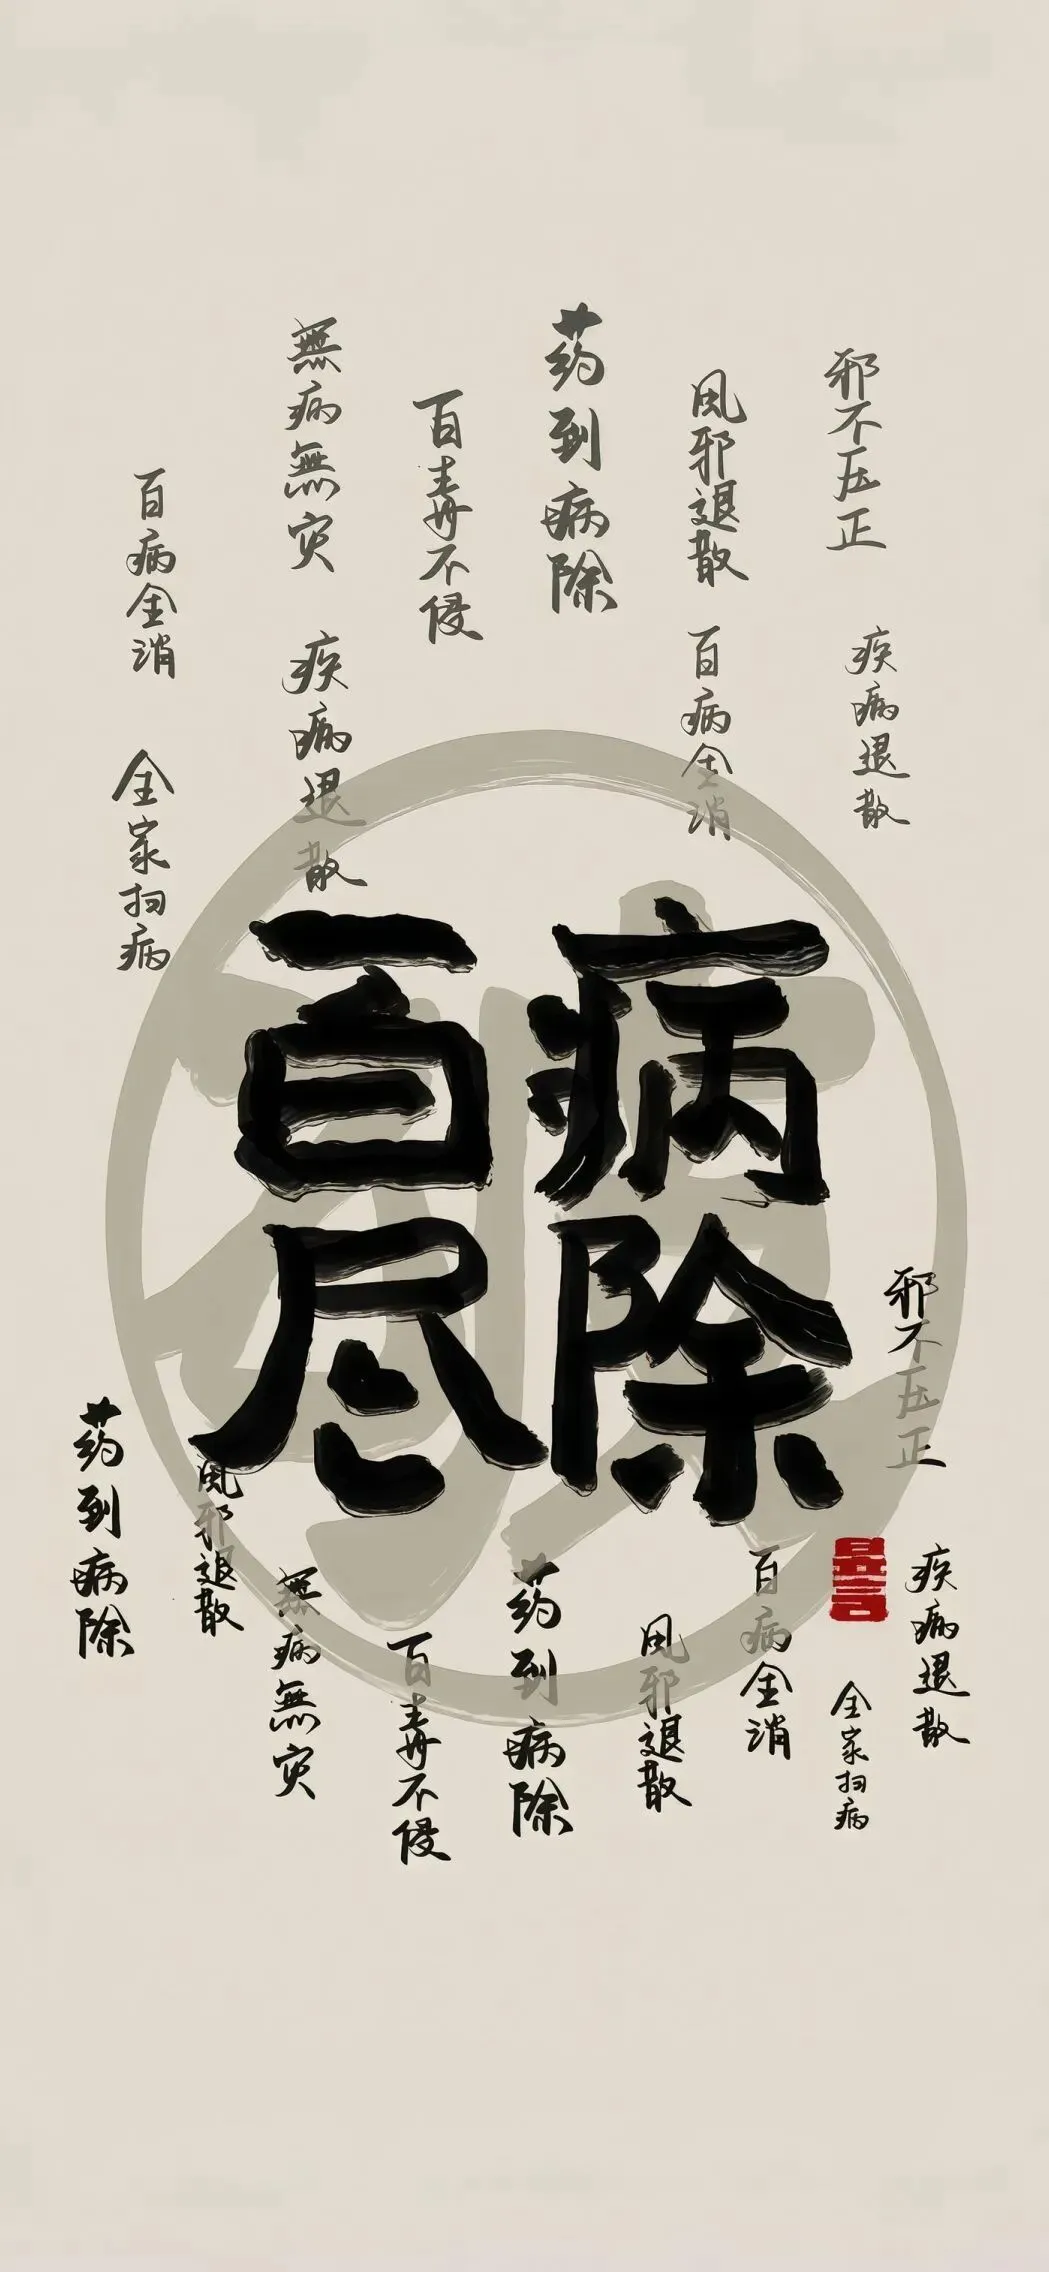 邪不压正
疾病退散
风邪退散
百病全消
药到病除
百毒不侵
無病無灾
疾病退散
百病全消
全家扫病
百病
尽除
邪不压正
疾病退散
全家扫病
百病全消
风邪退散
药到病除
百毒不侵
無病無灾
风邪退散
药到病除